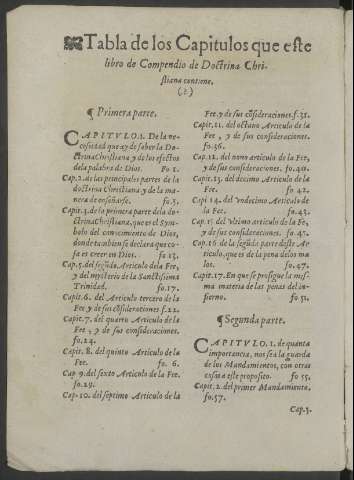 Tabla de los Capitulos que este
libro de Compendio de Doctrina Chri-
stiana contiene.
(.?.)
¶ Primera parte.
CAPITVLO.1. De la ne-
cessidad que ay de saber la Do-
ctrina Christiana y de los efectos
dela palabra de Dios. Fo 1.
Cap.2. de las principales partes de la
doctrina Christiana y de la ma-
nera de enseñarse. fo.5.
Capit.4. de la primera parte dela do-
ctrina Christiana, que es el Sym-
bolo del conocimiento de Dios,
donde tambien se declara que co-
sa es creer en Dios. fo 13.
Cap.5. del segũdo. Articulo dela Fee,
y del mysterio de la Sanctissima
Trinidad. fo.17.
Capit.6. del Articulo tercero de la
Fee y de sus cõsideraciones f.22.
Capit.7. del quarto Articulo de la
Fee, y de sus consideraciones.
fo.24.
Capit.8. del quinto Articulo de la
Fee. fo. 6.
Cap 9. del sexto Articulo de la Fee.
fo.29.
Cap.10. del septimo Articulo de la
Fee. y de sus cõsideraciones. f.31.
Capit.11. del octauo Articulo de la
Fe, y de sus consideraciones.
fo.36.
Cap.12. del nono articulo de la Fee,
y de sus consideraciones. fo.40.
Capit.13. del decimo Articulo de la
Fee. fo 42.
Capi 14. del vndecimo Articulo de
la Fee. fo.43.
Capit.15. del vltimo articulo de la Fe,
y de sus consideraciones. fo 45.
Cap.16. de la segũda parte d'este Ar-
ticulo, que es de la pena delos ma-
los. fo.47.
Capit.17. En que se prosigue la mis-
ma materia de las penas del in-
fierno. fo 51.
¶ Segunda parte.
CAPITVLO.1. de quanta
importancia, nos sea la guarda
de los Mandamientos, con otras
cosas a este proposito. fo 55.
Capit.2. del primer Mandamiento,
fo.57.
Cap.3.